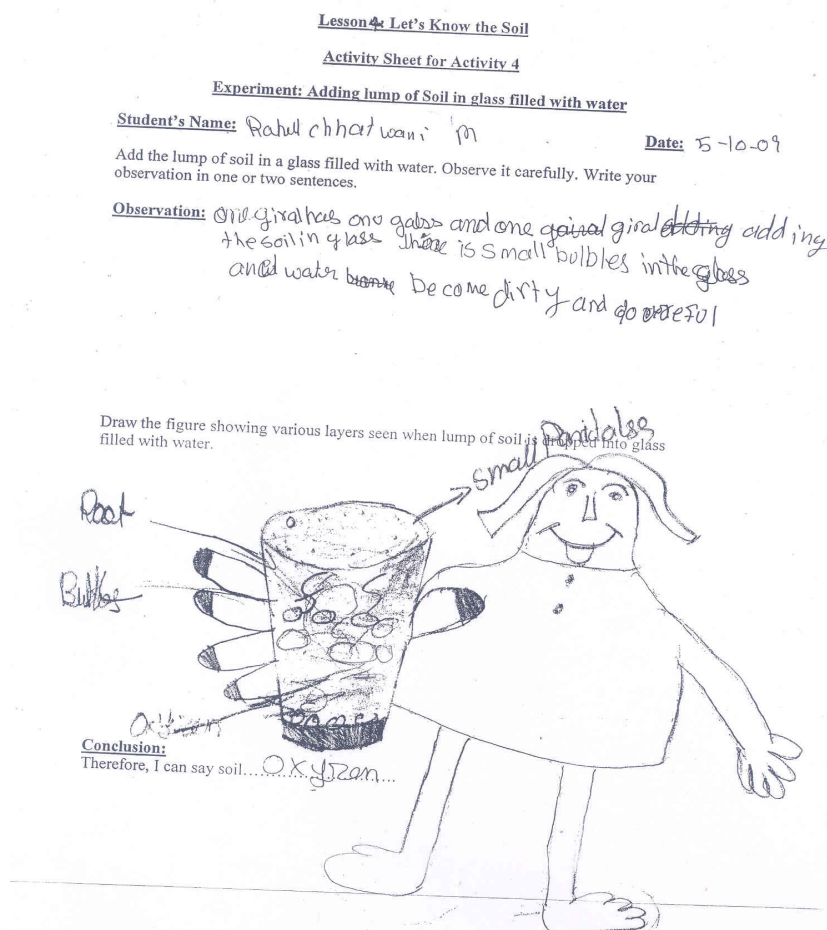 Lesson 4: Let's Know the Soil
Activity Sheet for Activity 4
Experiment: Adding lump of Soil in glass filled with water
Student's Name: Rahul chhatwani M
Date: 5-10-09
Add the lump of soil in a glass filled with water. Observe it carefully. Write your
observation in one or two sentences.
Observation: one giral has one galss and one giral adding
the soil in glass There is small bulbles in the glass
and water become dirty and
Draw the figure showing various layers seen when lump of soil is dropped into glass
filled with water.
small
Root
Bulbles
Conclusion:
Therefore, I can say soil....oxyzen...